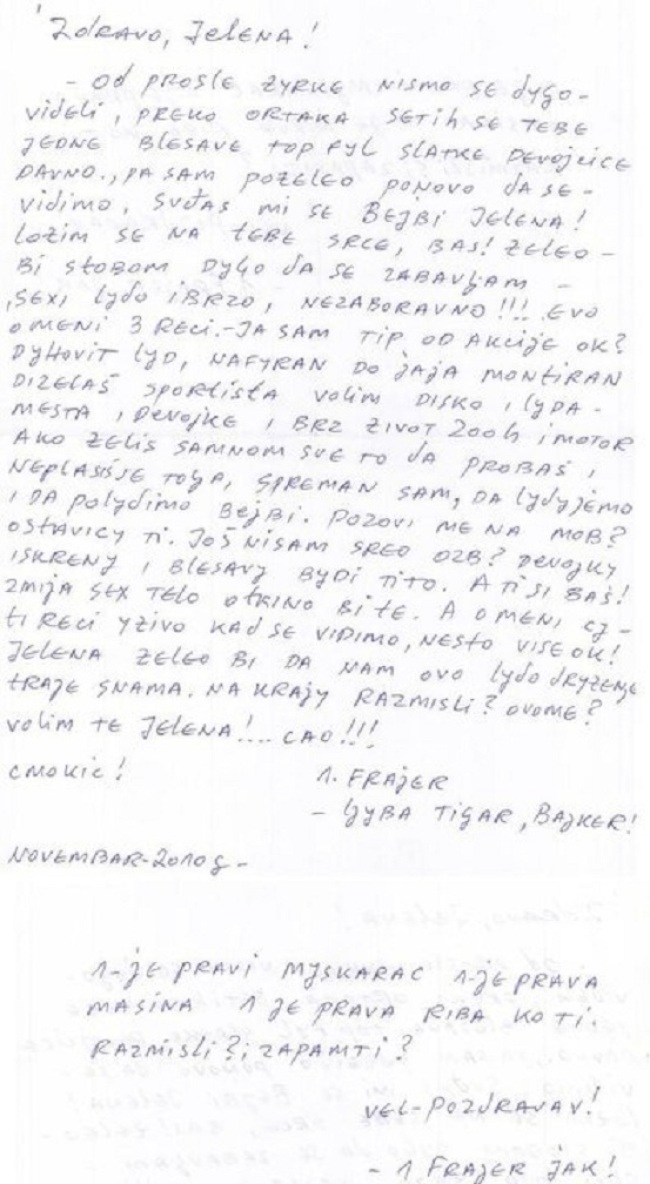 Zdravo, Jelena!
- OD PROSLE ZYRKE NISMO SE dygo-
videli, PREKO ORTAKA SETIHSE TEBE
JEDNE BLESAVE TOP FYL SLATKE DEVOJCICE
DAVNO., PA SAM POZELEO PONOVO DA SE-
vidimo, SVĐAS MI SE BEJBI JELENA!
LOZIM SE NA TEBE SRCE, BAS! ZELEO-
BI STOBOM DYGO DA SE ZABAVLJAM -
,SEXI lydo i BRZO, NEZABORAVNO!!! EVO
OMENI 3 RECI.-JA SAM TIP OD AKCIJE OK?
DYHOVIT LYD, NAFYRAN DO JAJA MONTIRAN
DIZELAŠ SPORTISTA VOLIM DISKO, I LYDA-
MESTA, DEVOJKE I BRZ ZIVOT 200h i MOTOR
AKO ZELIS SAMNOM SVE TO DA PROBAŠ,
NEPLASIŠSE TOGA, SPREMAN SAM, DA lydyjemo
I DA POLYDIMO BEJBI. POZOVI ME NA MOB?
OSTAVICY TI. JOŠ NISAM SREO OZB? DEVOJKY
ISKRENY I BLESAVY BYDI TITO. A TI SI BAŠ!
ZMIJA SEX TELO OTKINO BI TE. A OMENI CY-
TI RECI YZIVO KAD SE VIDIMO, NESTO VISE OK!
JELENA ZELEO BI DA NAM OVO lydo DRYZENJE
TRAJE SNAMA. NA KRAJY RAZMISLI? OVOME?
VOLIM TE JELENA!... CAO!!!
CMOKIC!
1. FRAJER
- LJYBA TIGAR, BAJKER!
NOVEMBAR-2010g-
1-JE PRAVI MYSKARAC 1-JE PRAVA
MASINA 1 JE PRAVA RIBA KO TI
RAZMISLI?, i ZAPAMTI?
VEL-POZDRAVAV!
- 1 FRAJER JAK!